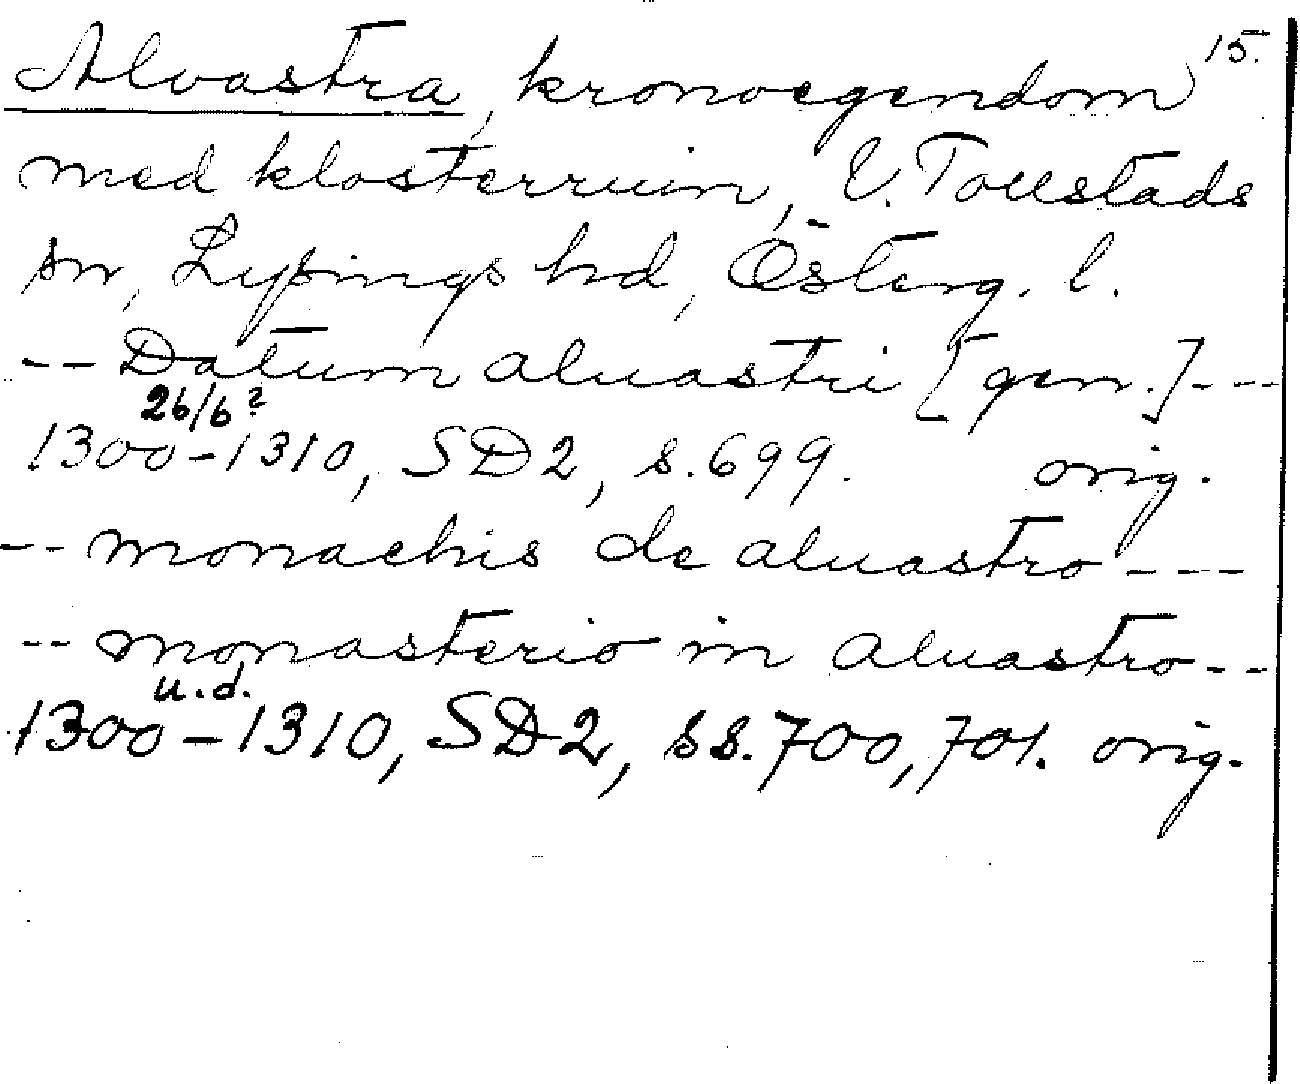 Alvastra, kronoegendom 15.
med klosterruin, V. Tollstads
sn, Lysings hd, Österg. l.
-- Datum aluastri [gen.] ---
26/6?
1300-1310, SD2, s. 699. orig.
-- monachis de aluastro ---
-- monasterio in aluastro --
u.d.
1300-1310, SD2, ss. 700, 701. orig.